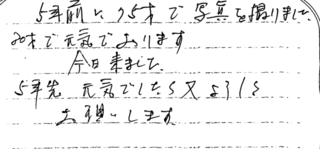 5年前に75才で写真を撮りました
80才で元気でおります
今日来ました
5年先元気でしたら又よろしく
お願いします